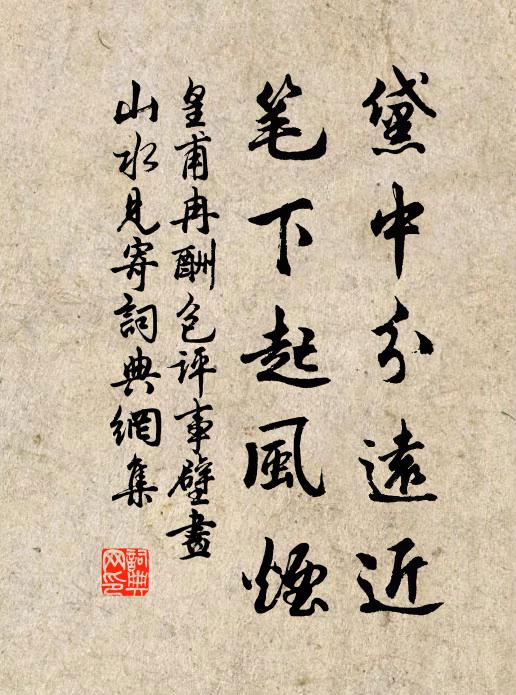 黛中分遠近
笔下起風煙
皇甫冉酬包评事壁畫
山水見寄詞典網集
詞典网印